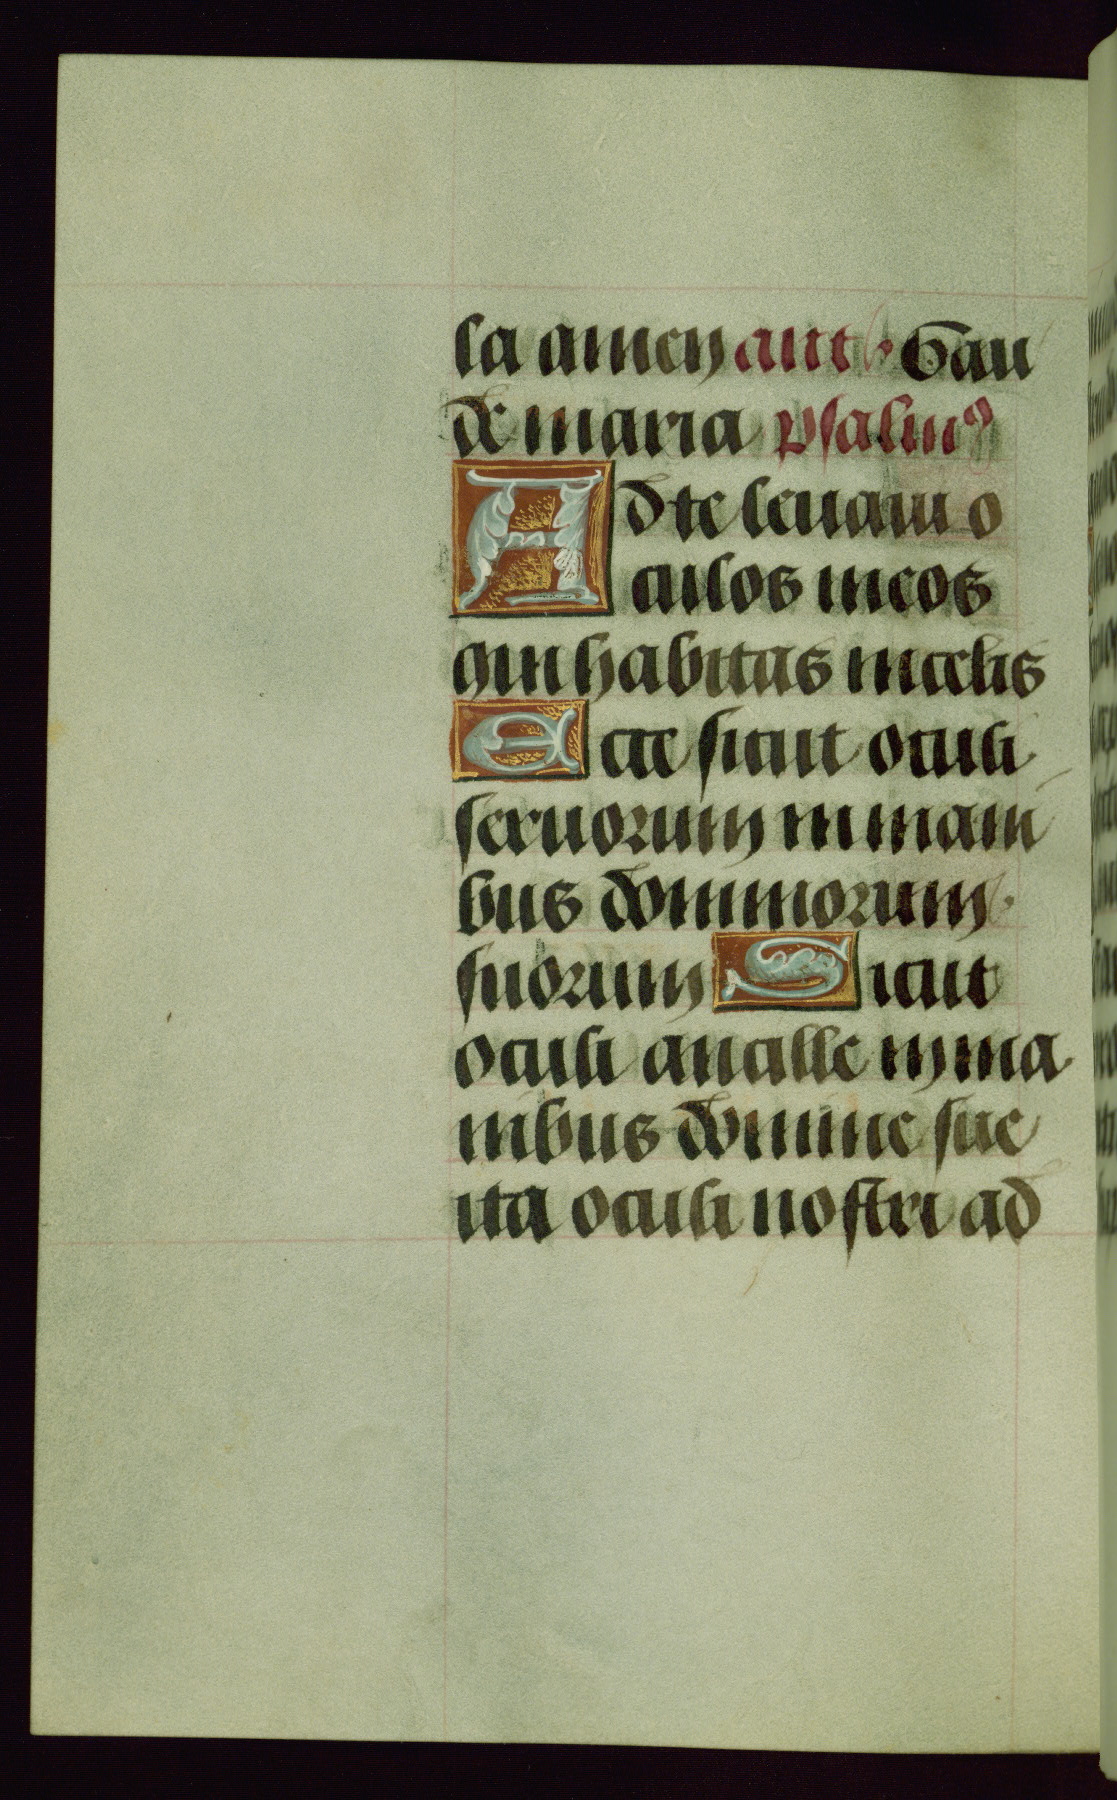 la amen ant. Gau
de maria psalmꝰ
Ad te levavi o
culos meos
qui habitas in celis
Ecce sicut oculi
servorum in mani
bus dominorum
suorum Sicut
oculi ancille in ma
nibus domine sue
ita oculi nostri ad